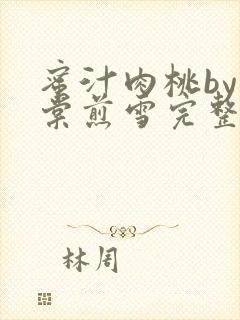 蜜汁肉桃by
棠煎雪完整
林周